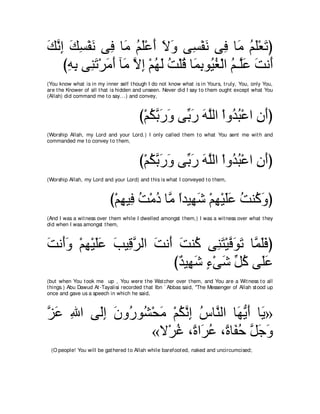 ﴿تَعْلَمُ مَا فِى نَفْسِى وَلاَ أَعْلَمُ مَا فِى نَفْسِكَ إِنَّكَ
أَنتَ عَلَّـمُ الْغُيُوبِمَا قُلْتُ لَهُمْ إِلاَّ مَآ أَمَرْتَنِى بِهِ﴾
(You know what is in my inner self though I do not know what is in Yours, truly, You, only You, are the Knower of all that is hidden and unseen. Never did I say to them ought except what You (Allah) did command me to say...) and convey,
﴿أَنِ اعْبُدُواْ اللَّهَ رَبِّى وَرَبَّكُمْ﴾
(Worship Allah, my Lord and your Lord.) I only called them to what You sent me with and commanded me to convey to them,
﴿أَنِ اعْبُدُواْ اللَّهَ رَبِّى وَرَبَّكُمْ﴾
(Worship Allah, my Lord and your Lord) and this is what I conveyed to them,
﴿وَكُنتُ عَلَيْهِمْ شَهِيداً مَّا دُمْتُ فِيهِمْ﴾
(And I was a witness over them while I dwelled amongst them,) I was a witness over what they did when I was amongst them,
﴿فَلَمَّا تَوَفَّيْتَنِى كُنتَ أَنتَ الرَّقِيبَ عَلَيْهِمْ وَأَنتَ
عَلَى كُلِّ شَىْءٍ شَهِيدٌ﴾
(but when You took me up , You were the Watcher over them, and You are a Witness to all things.) Abu Dawud At-Tayalisi recorded that Ibn `Abbas said, "The Messenger of Allah stood up once and gave us a speech in which he said,
«يَا أَيُّهَا النَّاسُ إِنَّكُمْ مَحْشُورُونَ إِلَى اللهِ عَزَّ
وَجَلَّ حُفَاةً، عُرَاةً، غُرْلًا»
(O people! You will be gathered to Allah while barefooted, naked and uncircumcised;